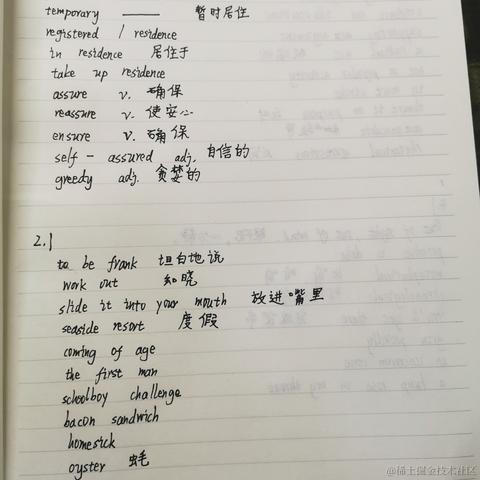 temporary ——— 暂时居住
registered / residence
in residence 居住于
take up residence
assure v. 确保
reassure v. 使安心
ensure v. 确保
self-assured adj. 自信的
greedy adj. 贪婪的
2.1
to be frank 坦白地说
work out 知晓
slide it into your mouth 放进嘴里
seaside resort 度假
coming of age
the first man
schoolboy challenge
bacon sandwich
homesick
oyster 蚝
@稀土掘金技术社区